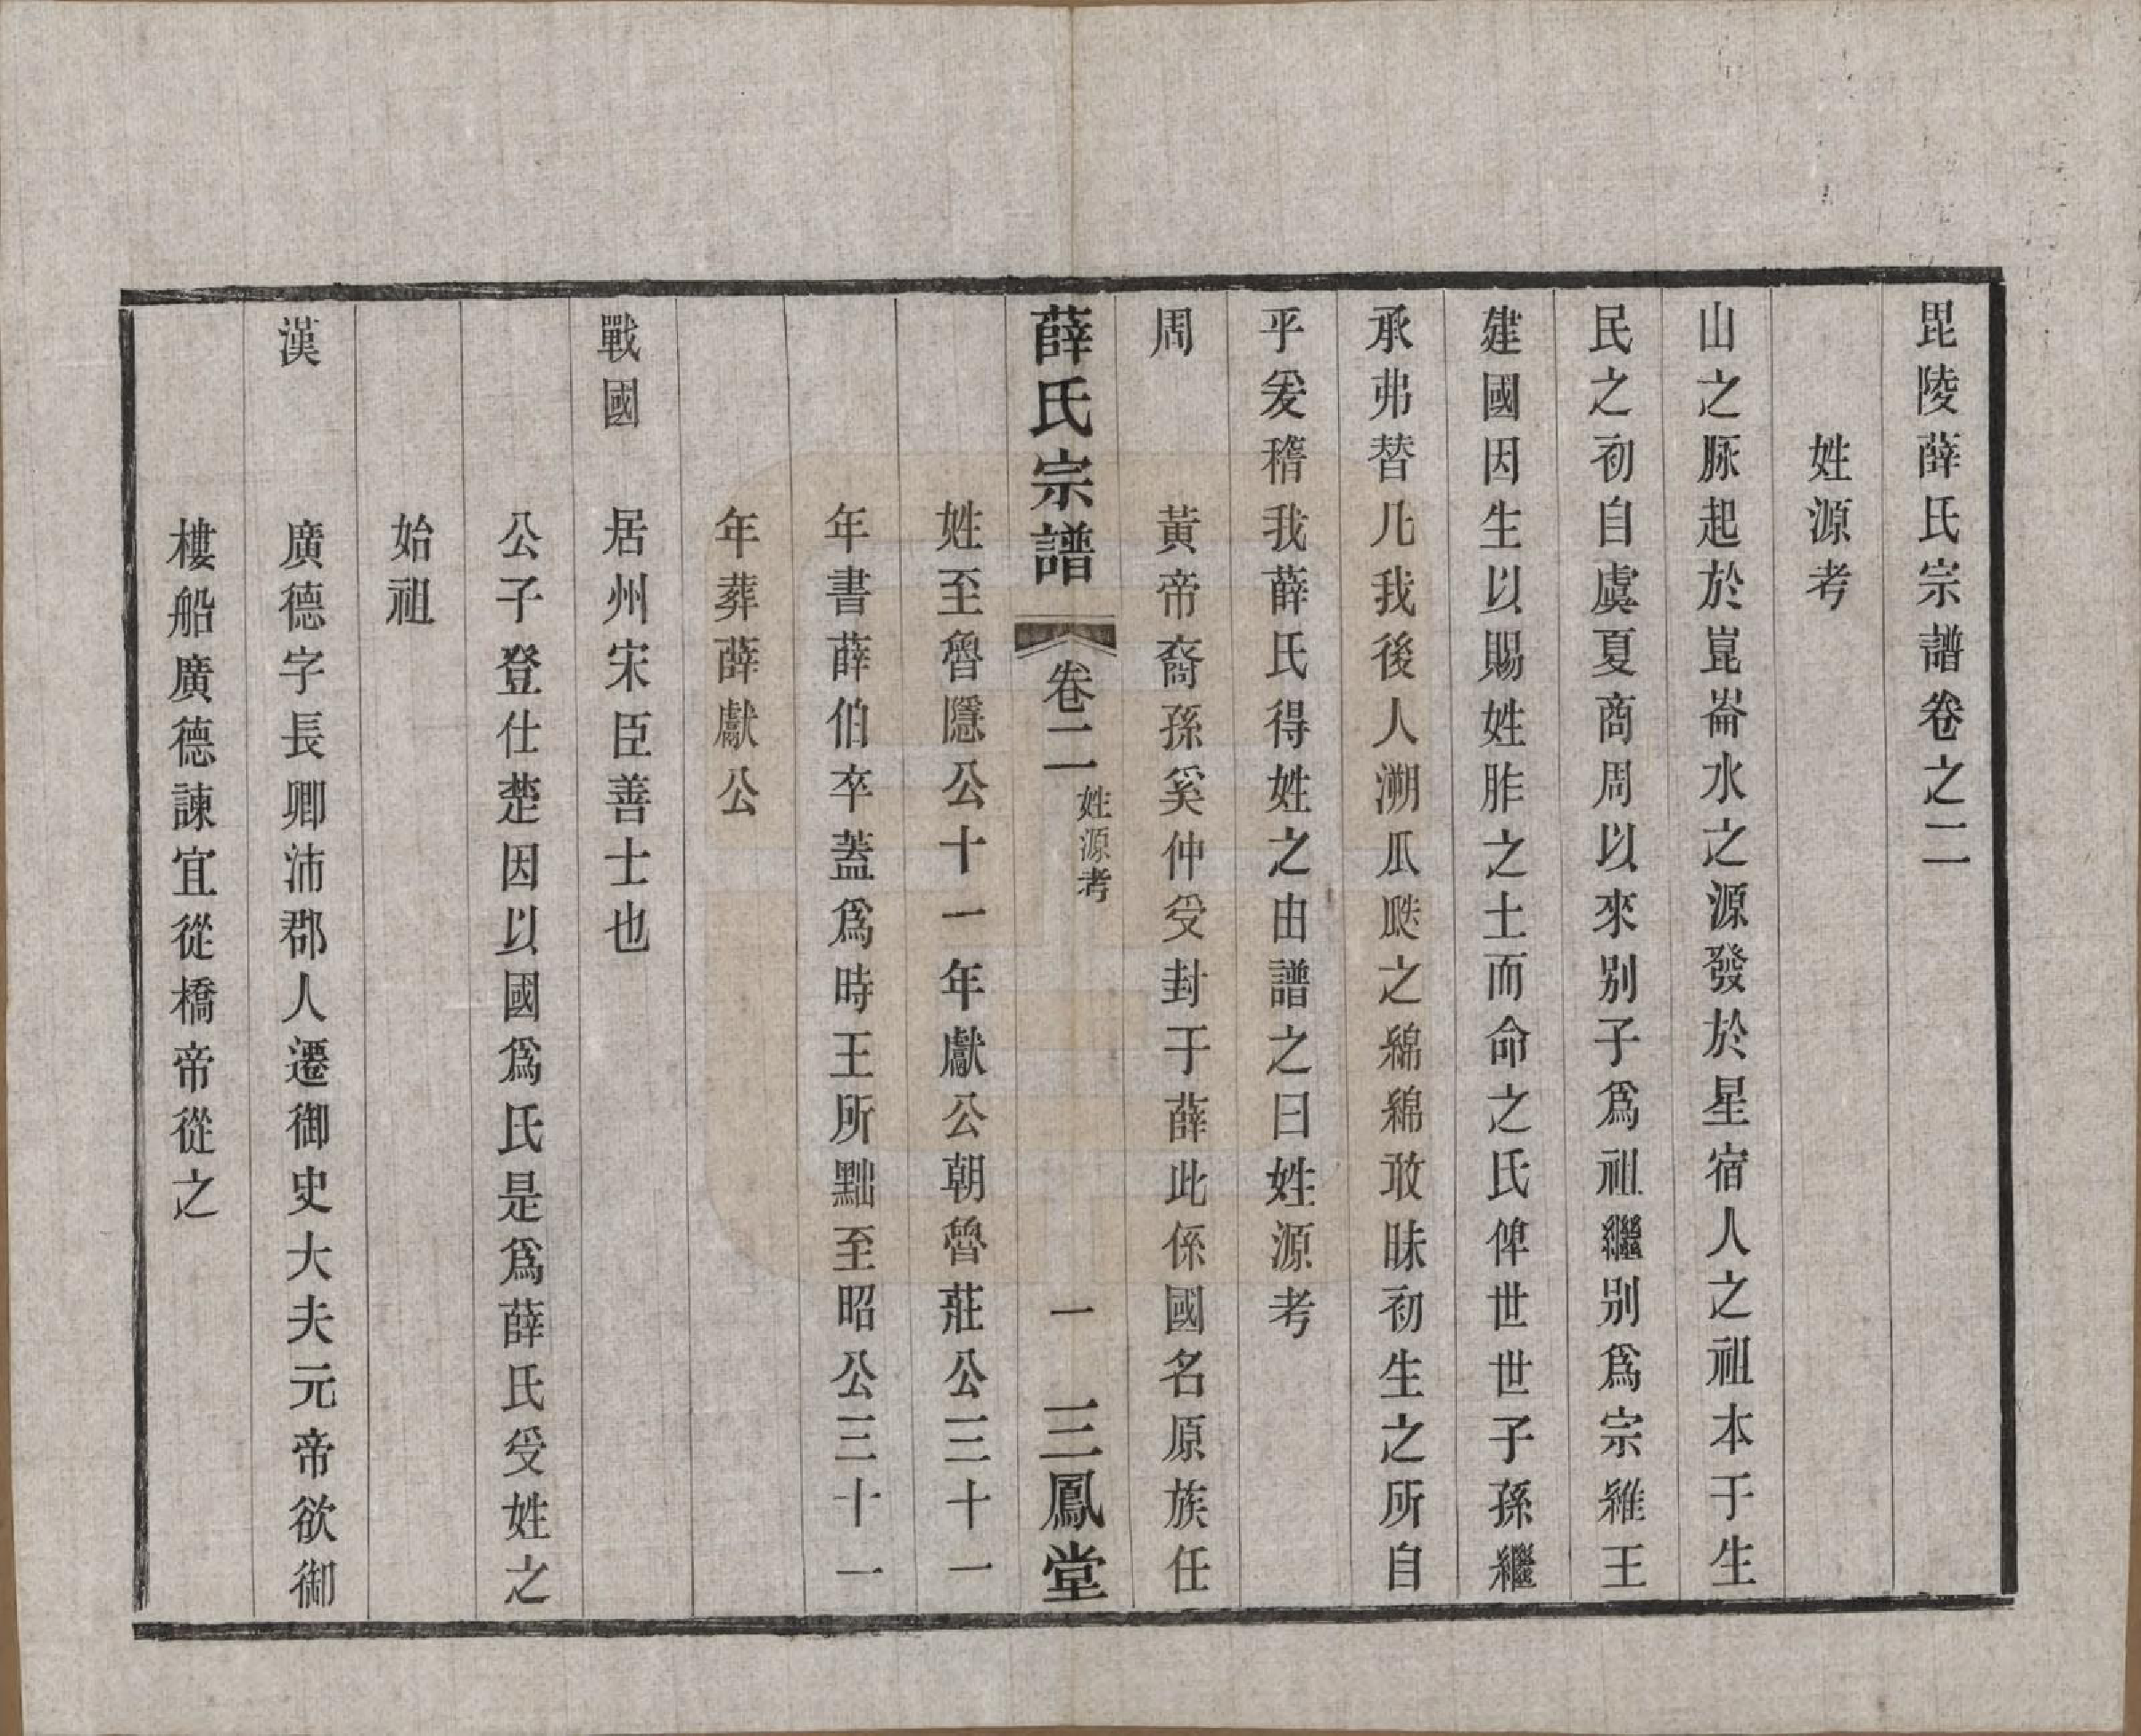 毘陵薛氏宗譜卷之二
姓源考
山之脉起於崑崙水之源發於星宿人之祖本于生
民之初自虞夏商周以來别子爲祖繼别爲宗維王
建國因生以賜姓胙之土而命之氏俾世世子孫繼
承弗替凡我後人溯瓜瓞之綿綿敢昧初生之所自
乎爰稽我薛氏得姓之由譜之曰姓源考
周 黃帝裔孫奚仲受封于薛此係國名原族任
薛氏宗譜 卷二 姓源考 一 三鳳堂
姓至魯隱公十一年獻公朝魯莊公三十一
年書薛伯卒蓋爲時王所黜至昭公三十一
年葬薛獻公
戰國 居州宋臣善士也
公子登仕楚因以國爲氏是爲薛氏受姓之
始祖
漢 廣德字長卿沛郡人遷御史大夫元帝欲御
樓船廣德諫宜從橋帝從之